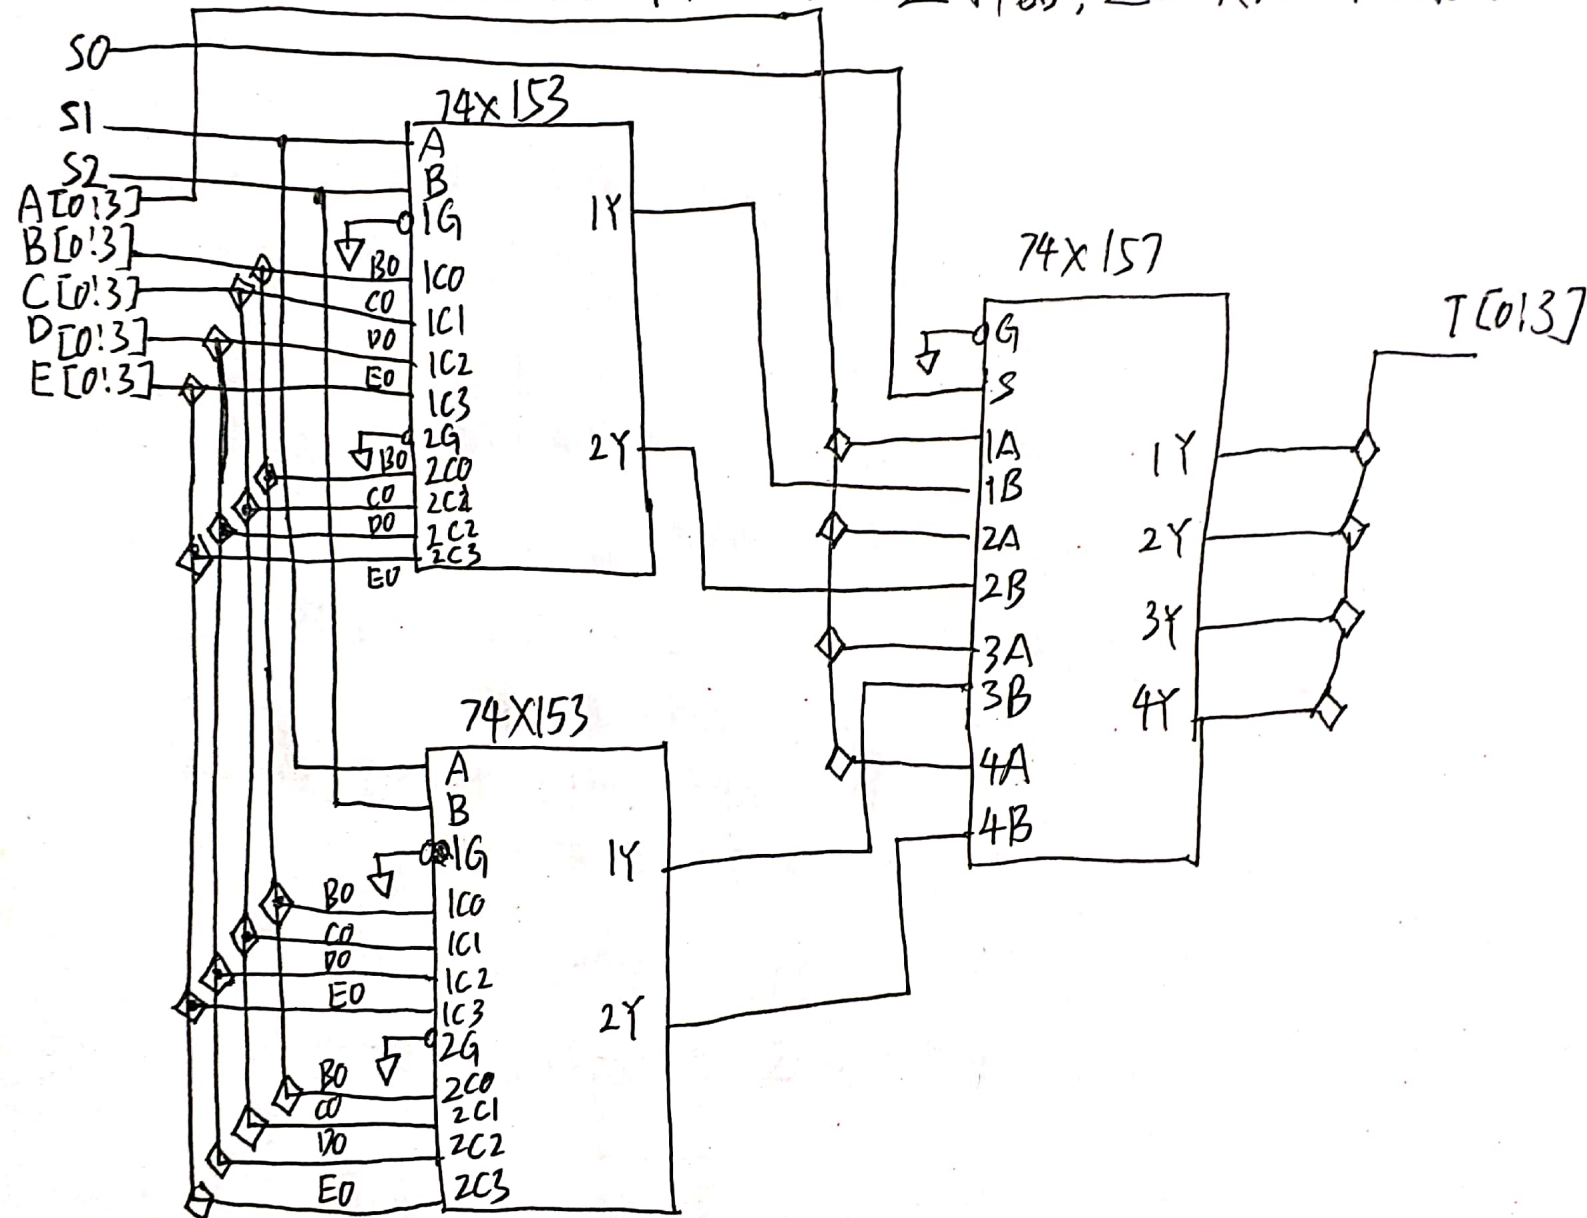 S0
S1
S2
A[0:3]
B[0:3]
C[0:3]
D[0:3]
E[0:3]
74X153
A
B
1G
B0 1C0
C0 1C1
D0 1C2
E0 1C3
2G
B0 2C0
C0 2C1
D0 2C2
E0 2C3
1Y
2Y
74X153
A
B
1G
B0 1C0
C0 1C1
D0 1C2
E0 1C3
2G
B0 2C0
C0 2C1
D0 2C2
E0 2C3
1Y
2Y
74X157
G
S
1A
1B
2A
2B
3A
3B
4A
4B
1Y
2Y
3Y
4Y
T[0:3]